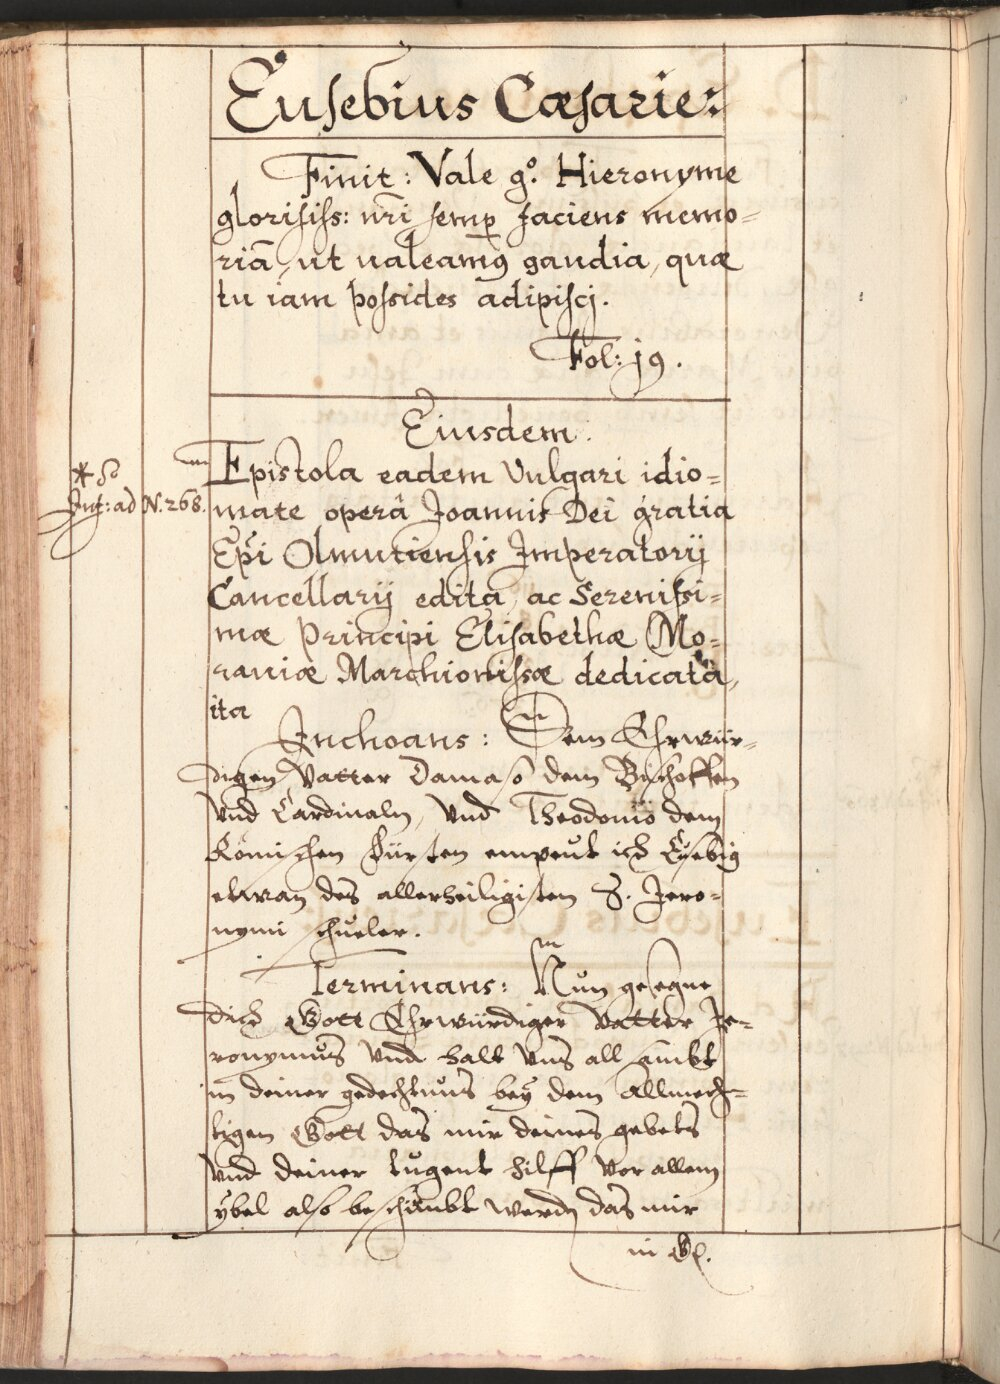 Eusebius Cæsarie:
Finit: Vale g°. Hieronyme
glorisiss: nr̃i semp faciens memo-
riã, ut ualeamꝰ gaudia, quæ
tu iam possides adipiscj.
Fol: j9.
Eiusdem.
Epistola eadem Vulgari idio-
Int: ad N. 268.
mate operâ Joannis Dei gratia
Epĩ Olmutiensis Imperatorij
Cancellarij edita, ac Serenissi-
mæ Principi Elisabethæ Mo-
rauiæ Marchionissæ dedicata,
ita
Inchoans: Dem Ehrwür-
digen Vatter Damaso dem Bischoffen
Vnd Cardinaln, Vnd Theodonio dem
Römischen Fürsten empeut ich Eusebig
etwan des allerheiligisten S. Jero-
nymi schueler.
Terminans: Nun gesegne
dich Gott Ehrwürdiger Vatter Je-
ronymus Vnd halt Vns all sambt
in deiner gedechtnus bey dem Allmech-
tigen Gott das mir deines gebets
Vnd deiner tugent hilff Vor allem
ybel also beschirmbt werdn das mir
in